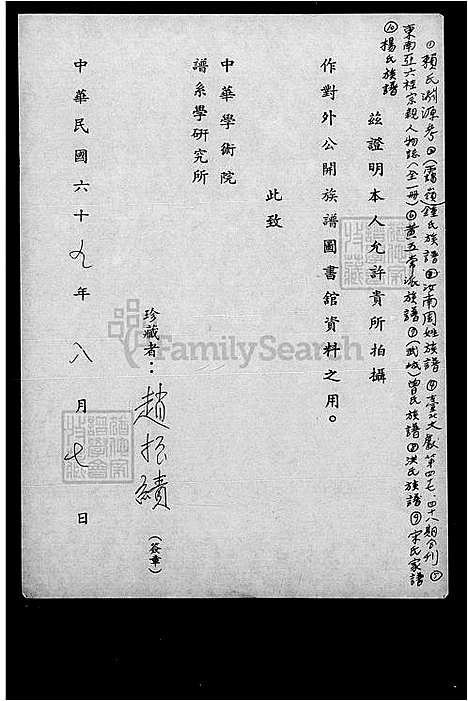 ①賴氏淵源考②(霞嶺)鍾氏族譜③汝南周姓族譜④臺北文獻第四七、四十八期合刊⑤
東南亞六桂宗親人物誌(全一冊)⑥黃五常派族譜⑦(武城)曾氏族譜⑧洪氏族譜⑨宋氏家譜
⑩楊氏族譜
茲證明本人允許貴所拍攝
作對外公開族譜圖書館資料之用。
此致
中華學術院
譜系學研究所
珍藏者：趙振績(簽章)
中華民國六十九年八月七日
FamilySearch